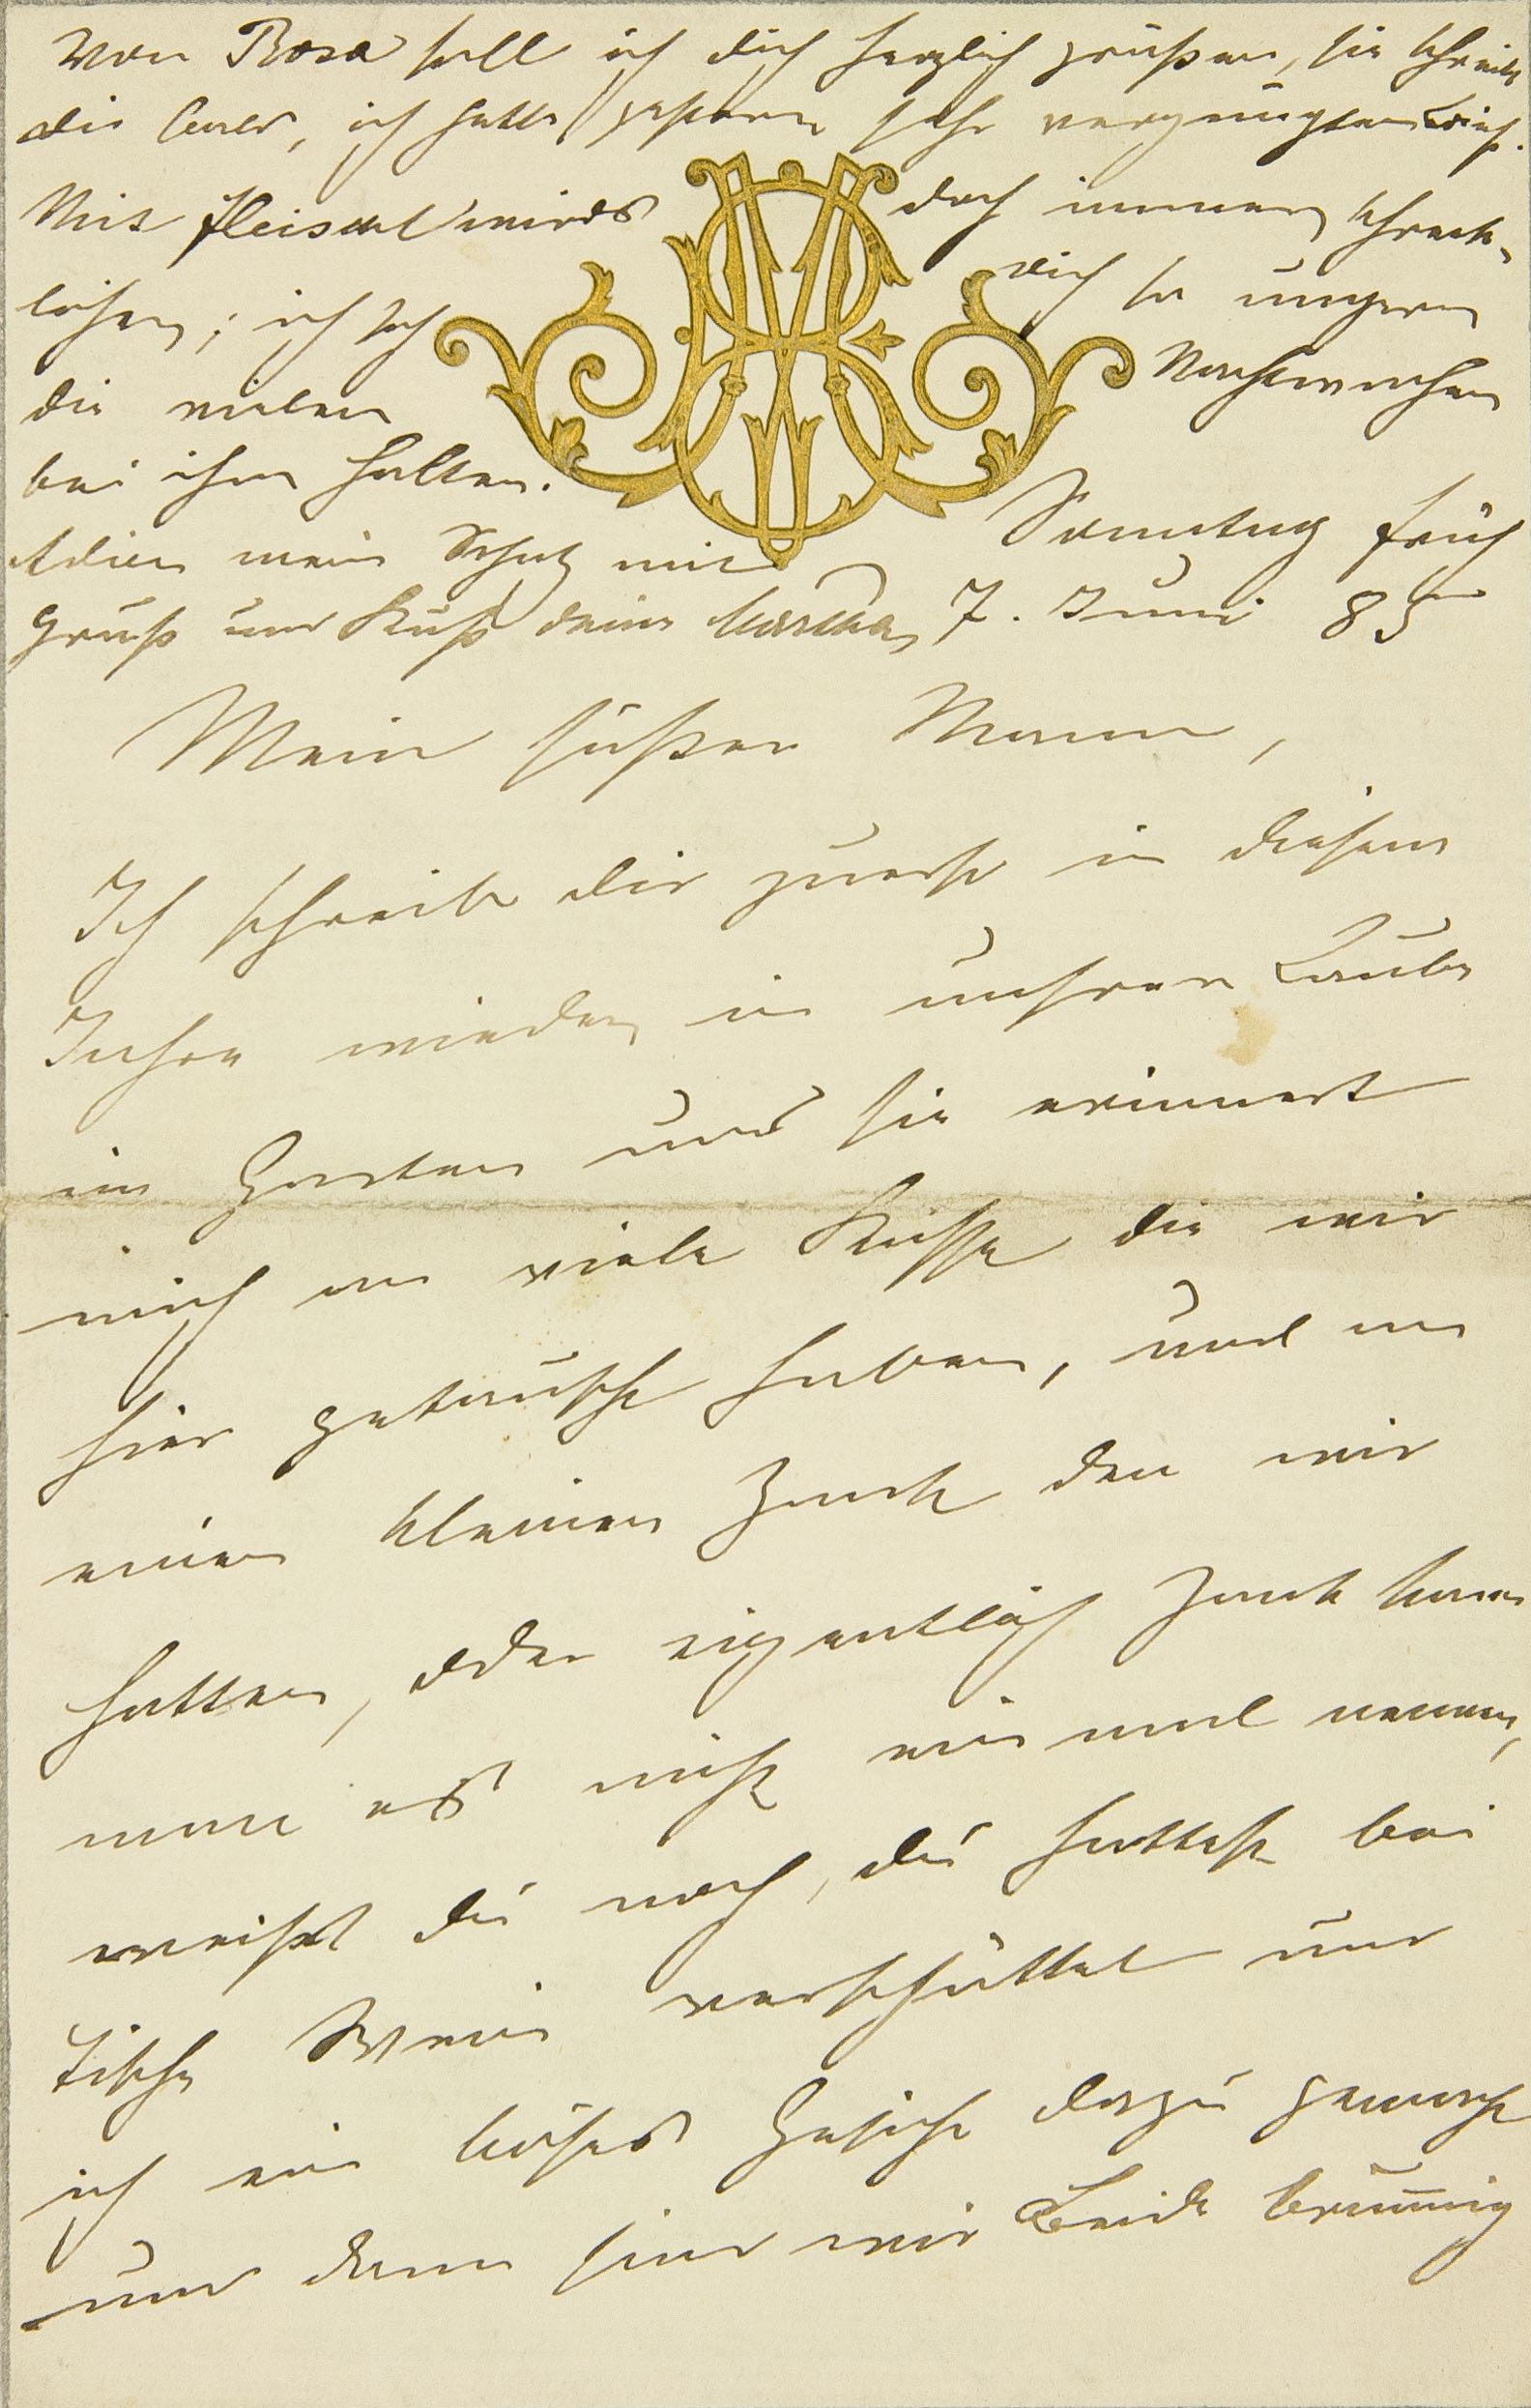 Von Rosa soll ich dich herzlich grüßen, sie schreibt
dir bald, ich hatte gestern sehr vergnügten Brief.
Mit Fleischl wirds doch immer schreck-
licher; ich seh dich so ungern
die vielen Nachtwachen
bei ihm halten.
Adieu mein Schatz mit
Gruß und Kuß deine Martha
Sonntag früh
7. Juni 85
Mein süßer Mann,
Ich schreibe dir zuerst in diesem
Jahre wieder in unsrer Laube
im Garten und sie erinnert
mich an viele Küsse die wir
hier getauscht haben, und an
einen kleinen Zank den wir
hatten, oder eigentlich Zank kann
man es nicht einmal nennen,
weißt du noch, du hattest bei
Tische Wein verschüttet und
ich ein böses Gesicht dazu gemacht
und dann sind wir Beide brummig